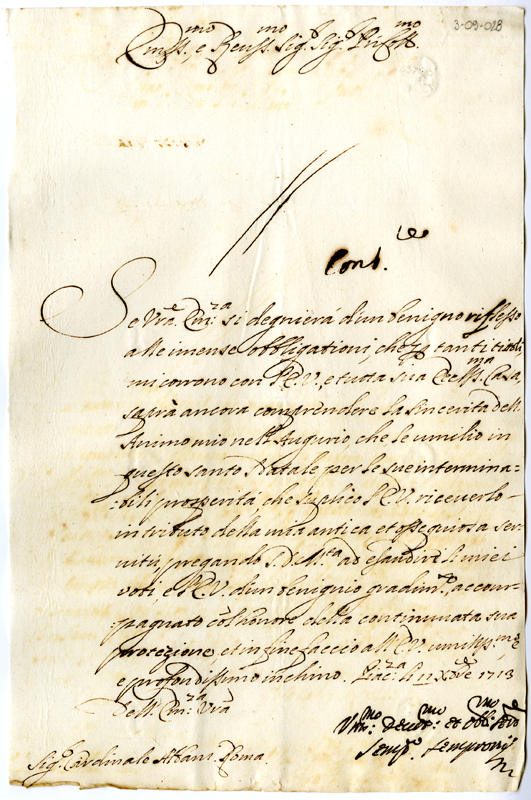 3-09-028
Em.mo e Reu.mo Sig.r Sig.r
Se Vr̃a Em.za si degnierá d'un benigno riflesso
alle imense obbligationi, che p tanti titoli
mi corrono con l'E.V. e tutta sua Ecc.ma Casa,
saprà ancora comprendere la sincerità dell'
Animo mio nell'Augurio che le umilio in
questo santo Natale per le sue intermina=
=bili prosperità, che suplico l'E.V. riceuerlo
in tributo della mia antica et osseguiosa ser=
uitù, pregando S.D.M.tà ad esaudire li miei
voti, e l'E.V. d'un benignio gradim.to, accom=
=pagnato col'honore della continuata sua
protezione et in fine faccio all'E.V. umiliss.ma
e profondissimo inchino. Piac.za li 11 Xbre 1713
Dell'Em.za Vr̃a
Sig.r Cardinale Albani Roma